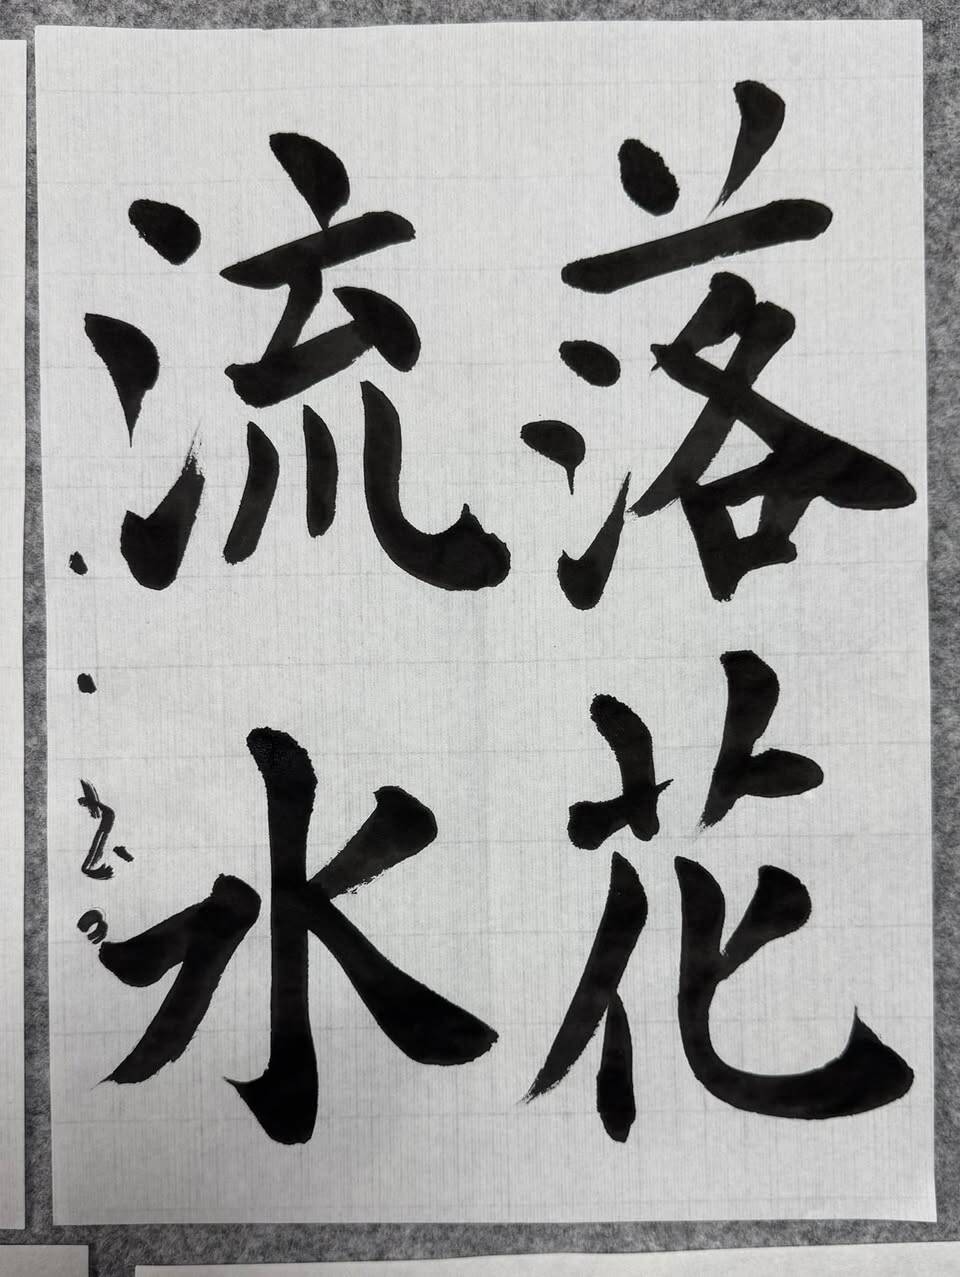 落花
流水